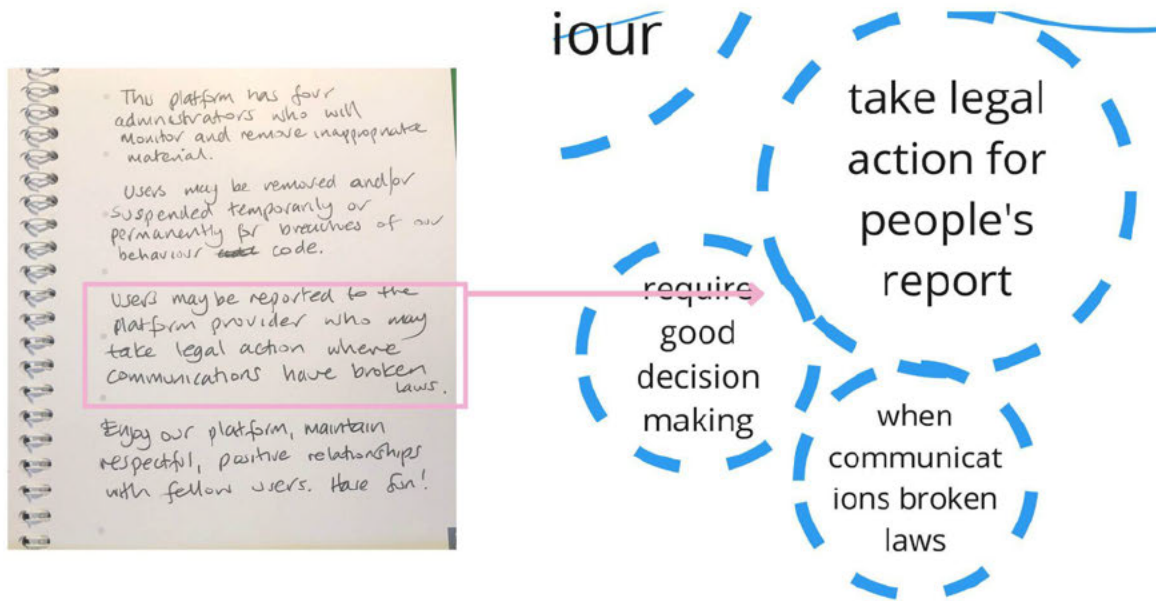 This platform has four
administrators who will
monitor and remove inappropriate
material.
Users may be removed and/or
suspended temporarily or
permanently for breaches of our
behaviour code.
Users may be reported to the
platform provider who may
take legal action where
communications have broken
laws.
Enjoy our platform, maintain
respectful, positive relationships
with fellow users. Have fun!
iour
take legal
action for
people's
report
require
good
decision
making
when
communicat
ions broken
laws